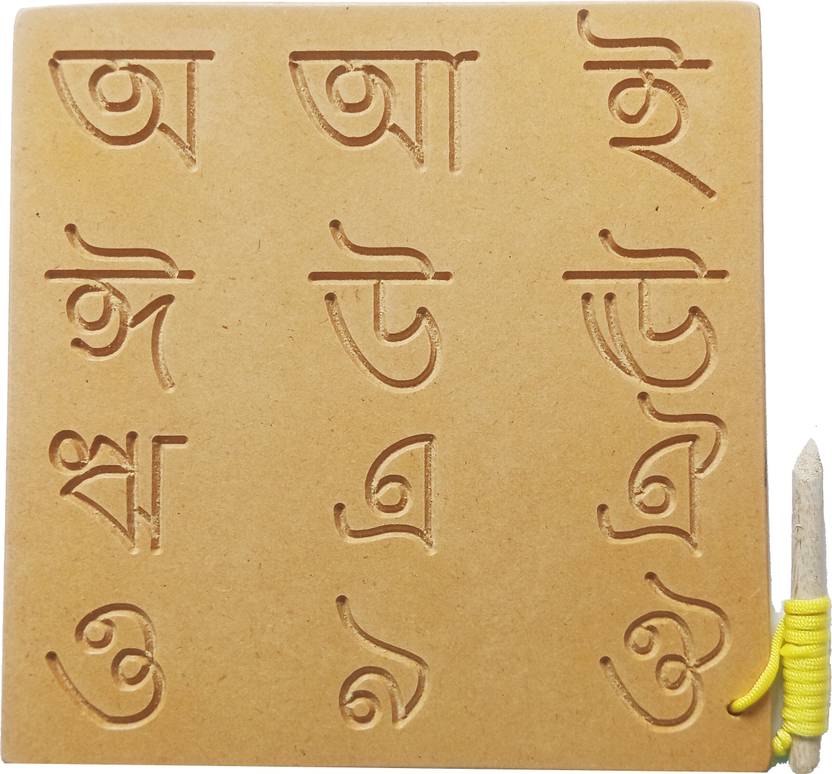 অ আ ই
ঈ উ ঊ
ঋ এ ঐ
ও ঔ